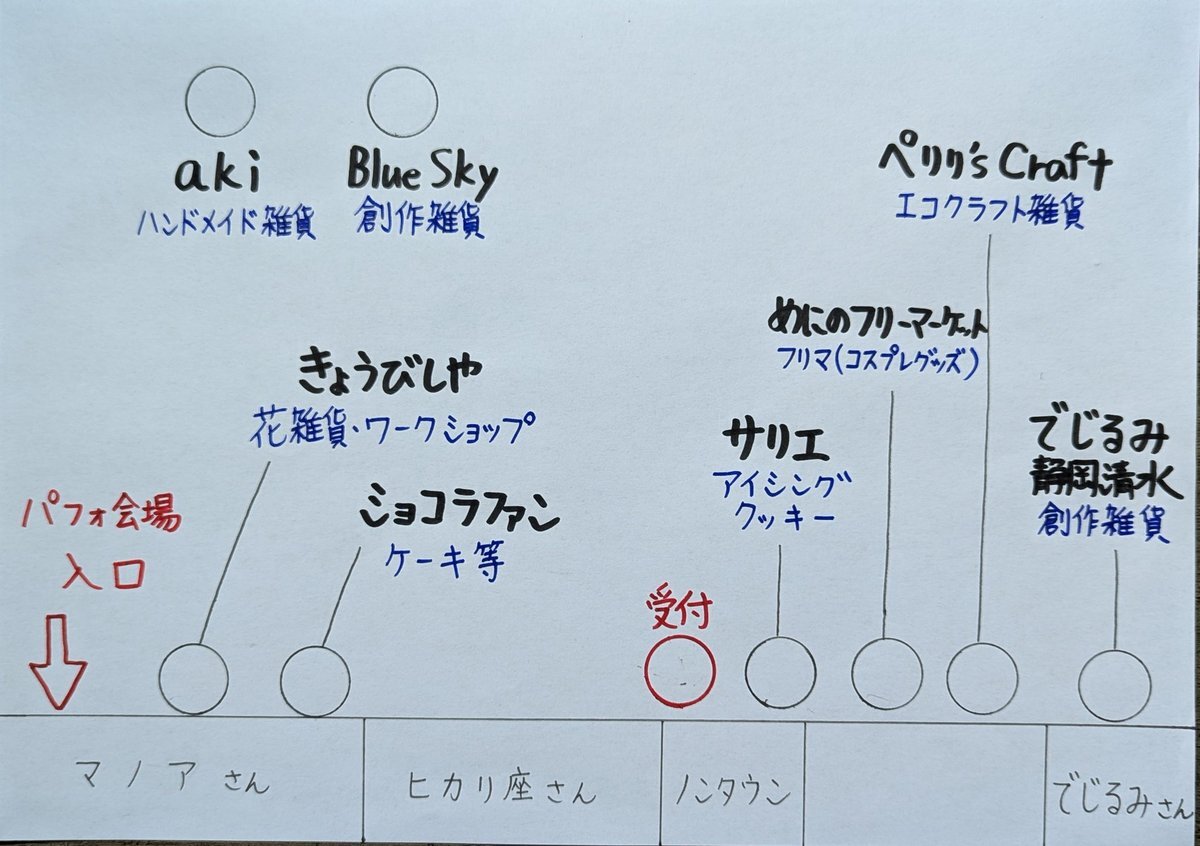 aki
ハンドメイド雑貨
Blue Sky
創作雑貨
ペリリ's Craft
エコクラフト雑貨
めにのフリーマーケット
フリマ(コスプレグッズ)
きょうびしや
花雑貨・ワークショップ
サリエ
アイシング
クッキー
でじるみ
静岡清水
創作雑貨
ショコラファン
ケーキ等
パフォ会場
入口
受付
マノアさん
ヒカリ座さん
ノンタウン
でじるみさん